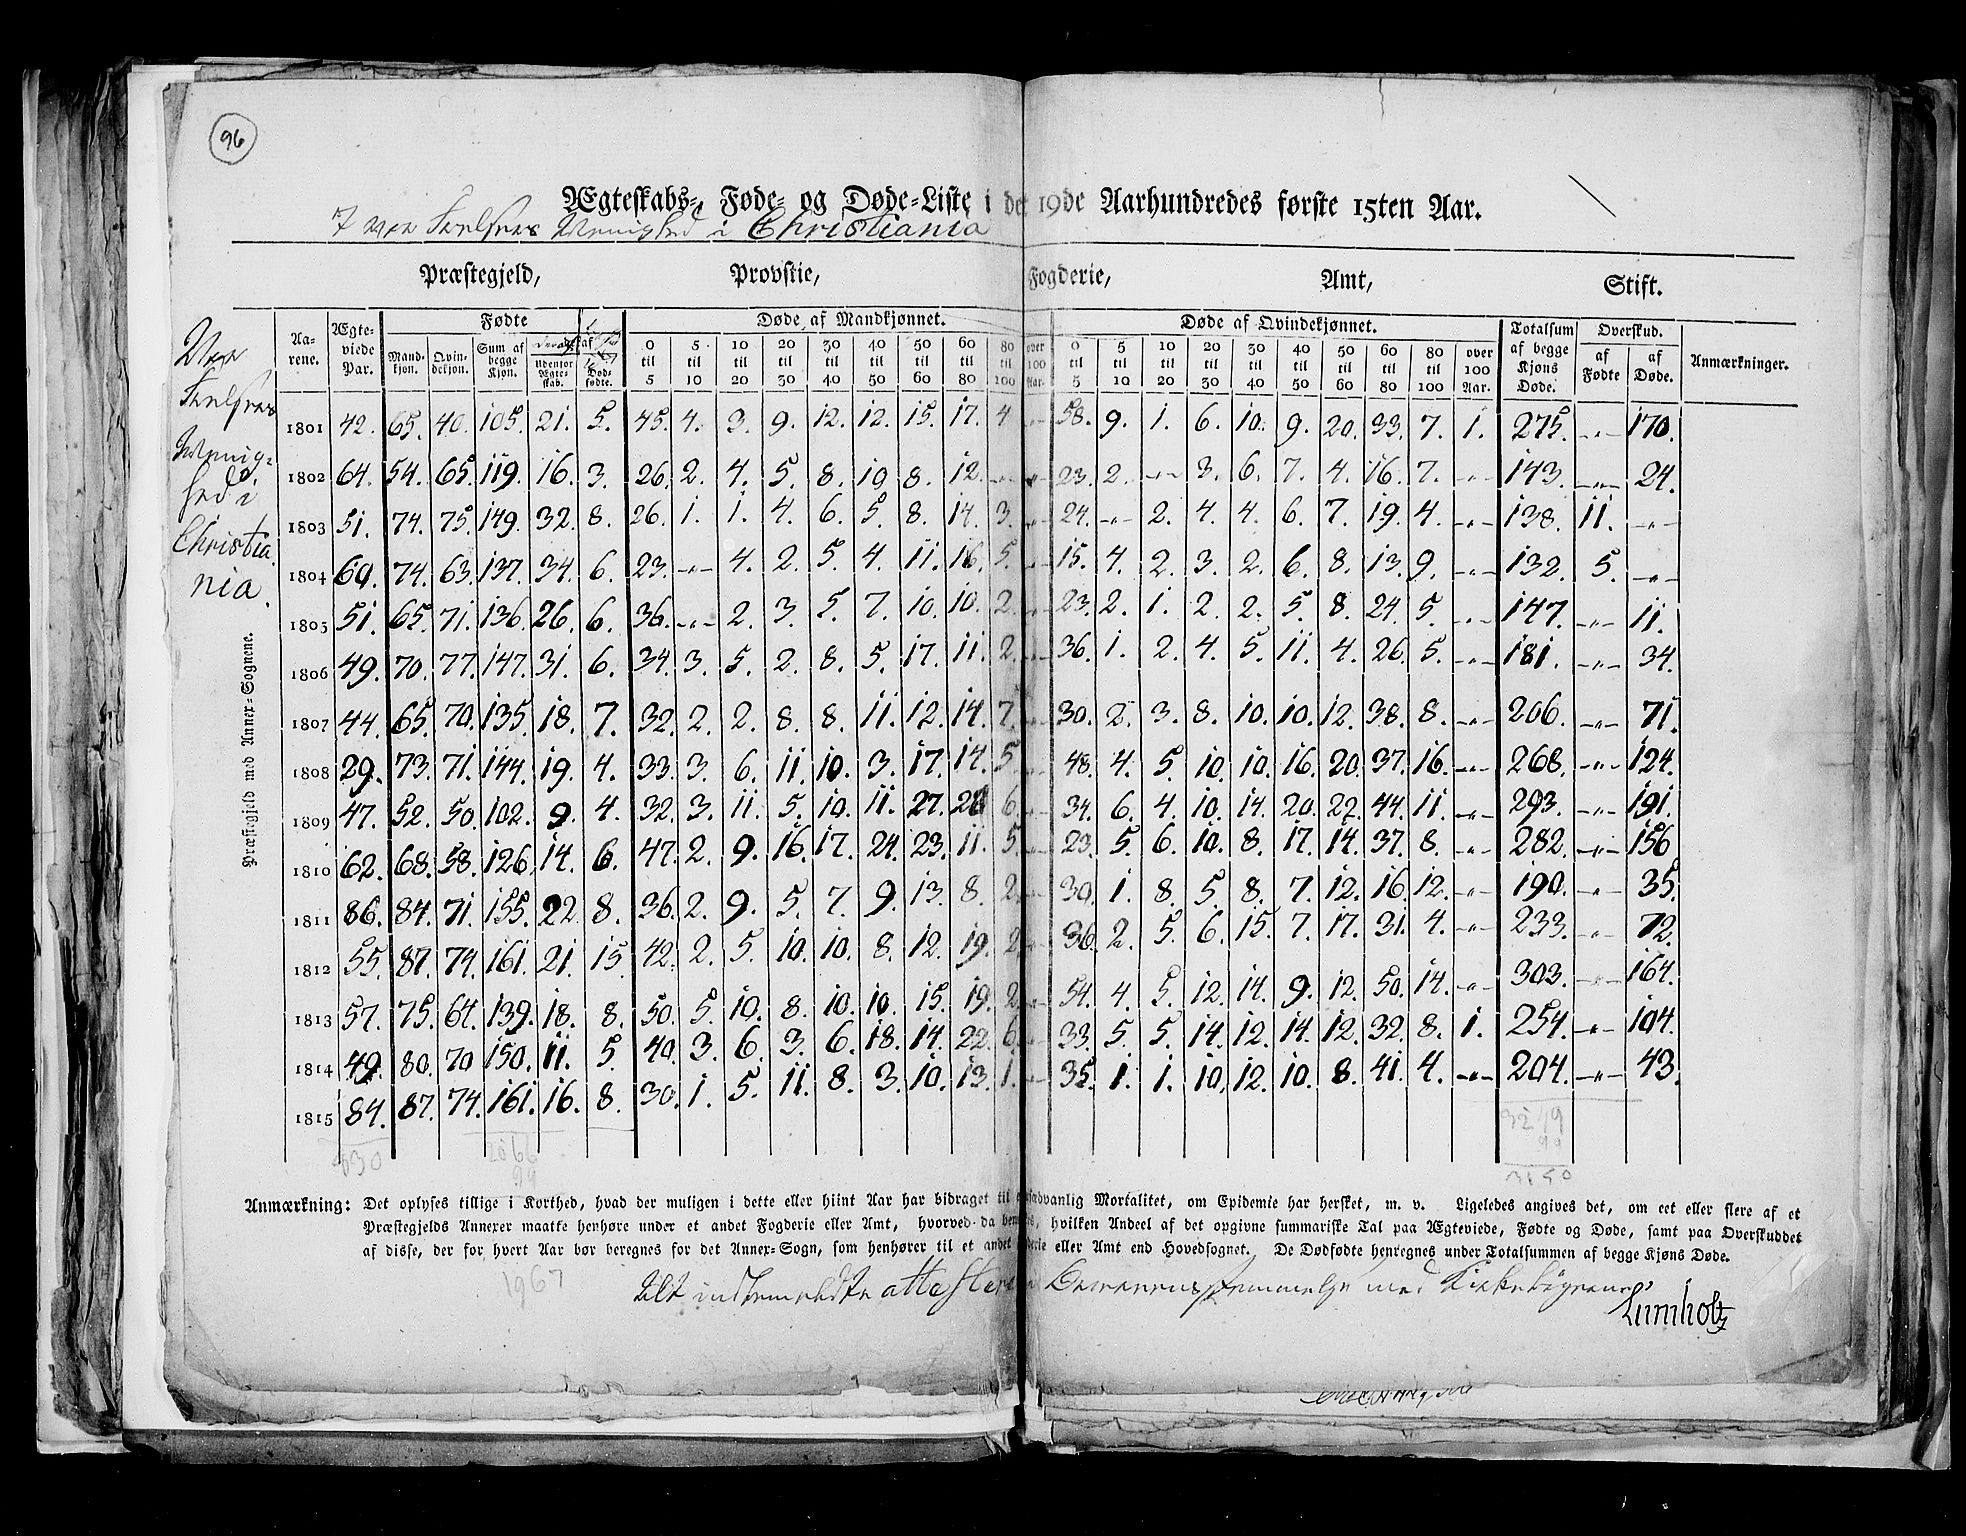 96
Ægteskabs-, Føde- og Døde-Liste i det 19de Aarhundredes første 15ten Aar.
Vor Frelseres Menighed i Christiania
Præstegjeld, Provstie, Fogderie, Amt, Stift.
Aarene. Ægteviede Par. Fødte Døde af Mandkjønnet. Døde af Qvindekjønnet. Totalsum af begge Kjøns Døde. Overskud. Anmærkninger.
Mandkjøn. Qvindekjøn. Sum af begge Kjøn. Deraf Udenfor Ægteskab. Dødfødte. 0 til 5 5 til 10 10 til 20 20 til 30 30 til 40 40 til 50 50 til 60 60 til 80 80 til 100 over 100 Aar. 0 til 5 5 til 10 10 til 20 20 til 30 30 til 40 40 til 50 50 til 60 60 til 80 80 til 100 over 100 Aar. af Fødte af Døde.
Vor
Frelseres
Menig=
hed i
Christia
nia.
Præstegjeld med Annex-Sognene.
1801 42. 65. 40. 105. 21. 5. 45. 4. 3. 9. 12. 12. 15. 17. 4 -"- 58. 9. 1. 6. 10. 9. 20. 33. 7. 1. 275. -"- 170.
1802 64. 54. 65. 119. 16. 3. 26. 2. 4. 5. 8. 10 8. 12. -"- -"- 23. 2. -"- 3. 6. 7. 4. 16. 7. -"- 143. -"- 24.
1803 51. 74. 75. 149. 32. 8. 26. 1. 1. 4. 6. 5. 8. 14. 3. -"- 24. -"- 2. 4. 4. 6. 7. 19. 4. -"- 138. 11. -"-
1804 60. 74. 63. 137. 34. 6. 23. -"- 4. 2. 5. 4. 11. 16. 5. -"- 15. 4. 2. 3. 2. 6. 8. 13. 9. -"- 132. 5. -"-
1805 51. 65. 71. 136. 26. 6. 36. -"- 2. 3. 5. 7. 10. 10. 2. -"- 23. 2. 1. 2. 2. 5. 8. 24. 5. -"- 147. -"- 11.
1806 49. 70. 77. 147. 31. 6. 34. 3. 5. 2. 8. 5. 17. 11. 2. -"- 36. 1. 2. 4. 5. 11. 4. 26. 5. -"- 181. -"- 34.
1807 44. 65. 70. 135. 18. 7. 32. 2. 2. 8. 8. 11. 12. 14. 7. -"- 30. 2. 3. 8. 10. 10. 12. 38. 8. -"- 206. -"- 71.
1808 29. 73. 71. 144. 19. 4. 33. 3. 6. 11. 10. 3. 17. 14. 5. -"- 48. 4. 5. 10. 10. 16. 20. 37. 16. -"- 268. -"- 124.
1809 47. 52. 50. 102. 9. 4. 32. 3. 11. 5. 10. 11. 27. 6. -"- 34. 6. 4. 10. 14. 20. 22. 44. 11. -"- 293. -"- 191.
1810 62. 68. 58. 126. 14. 6. 47. 2. 9. 16. 17. 24. 23. 11. 5. -"- 23. 5. 6. 10. 8. 17. 14. 37. 8. -"- 282. -"- 156
1811 86. 84. 71. 155. 22. 8. 36. 2. 9. 5. 7. 9. 13. 8. 2. -"- 30. 1. 8. 5. 8. 7. 12. 16. 12. -"- 190. -"- 35.
1812 55. 87. 74. 161. 21. 15. 42. 2. 5. 10. 10. 8. 12. 19. 2. -"- 36. 2. 5. 6. 15. 7. 17. 31. 4. -"- 233. -"- 72.
1813 57. 75. 64. 139. 18. 8. 50. 5. 10. 8. 10. 10. 15. 19. 2. -"- 54. 4. 5. 12. 14. 9. 12. 50. 14. -"- 303. -"- 164.
1814 49. 80. 70 150. 11. 5. 40. 3. 6. 3. 6. 18. 14. 22. 6. -"- 33. 5. 5. 14. 12. 14. 12. 32. 8. 1. 254. -"- 104.
1815 84. 87. 74. 161. 16. 8. 30. 1. 5. 11. 8. 3. 10. 13. 1. -"- 35. 1. 1. 10. 12. 10. 8. 41. 4. -"- 204. -"- 43.
830 2066 3249
99 99
3150
Anmærkning: Det oplyses tillige i Korthed, hvad der muligen i dette eller hiint Aar har bidraget til usædvanlig Mortalitet, om Epidemie har hersket, m. v. Ligeledes angives det, om eet eller flere af et
Præstegjelds Annexer maatte henhøre under et andet Fogderie eller Amt, hvorved da bemærkes, hvilken Andeel af det opgivne summariske Tal paa Ægteviede, Fødte og Døde, samt paa Overskuddet
af disse, der for hvert Aar bør beregnes for det Annex-Sogn, som henhører til et andet Fogderie eller Amt end Hovedsognet. De Dødfødte henregnes under Totalsummen af begge Kjøns Døde.
1967
attesteres Overensstemmelse med Kirkebøgerne
Lumholtz